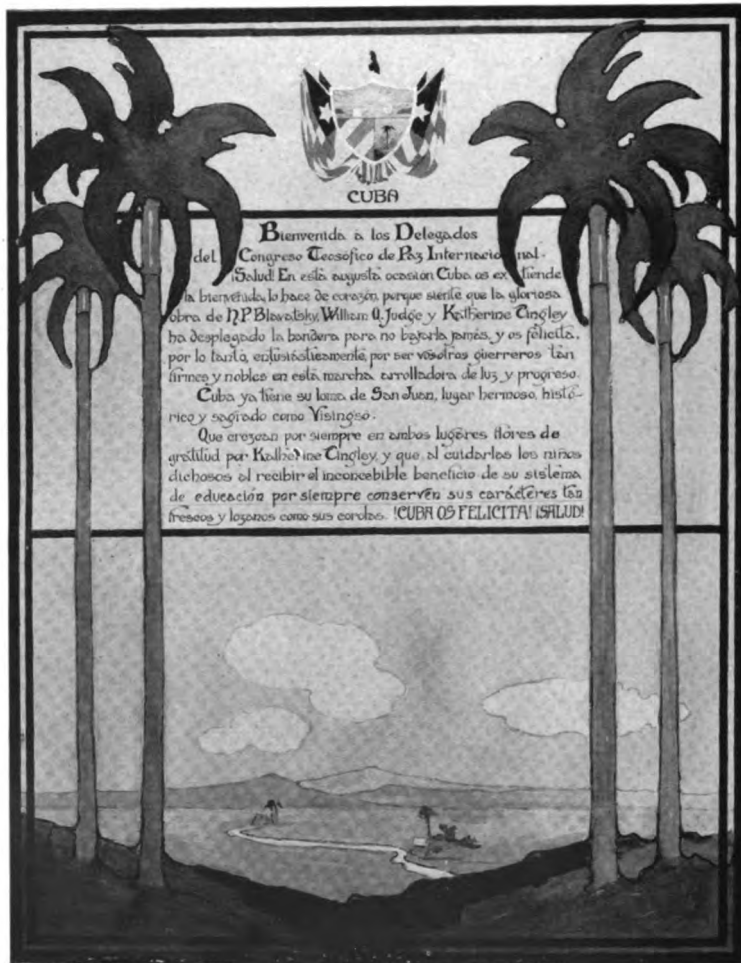 CUBA
Bienvenida a los Delegados
del Congreso Teosófico de Paz Internacional.
¡Salud! En esta augusta ocasión Cuba os extiende
la bienvenida, lo hace de corazón, porque siente que la gloriosa
obra de H.P. Blavatsky, William Q. Judge y Katherine Tingley
ha desplegado la bandera para no bajarla jamás, y os felicita,
por lo tanto, entusiásticamente, por ser vosotros guerreros tan
firmes y nobles en esta marcha arrolladora de luz y progreso.
Cuba ya tiene su loma de San Juan, lugar hermoso, histó-
rico y sagrado como Visingsö.
Que crezcan por siempre en ambos lugares flores de
gratitud por Katherine Tingley, y que al cuidarlas los niños
dichosos al recibir el inconcebible beneficio de su sistema
de educación por siempre conserven sus carácteres tan
frescos y lozanos como sus corolas. ¡CUBA OS FELICITA! ¡SALUD!